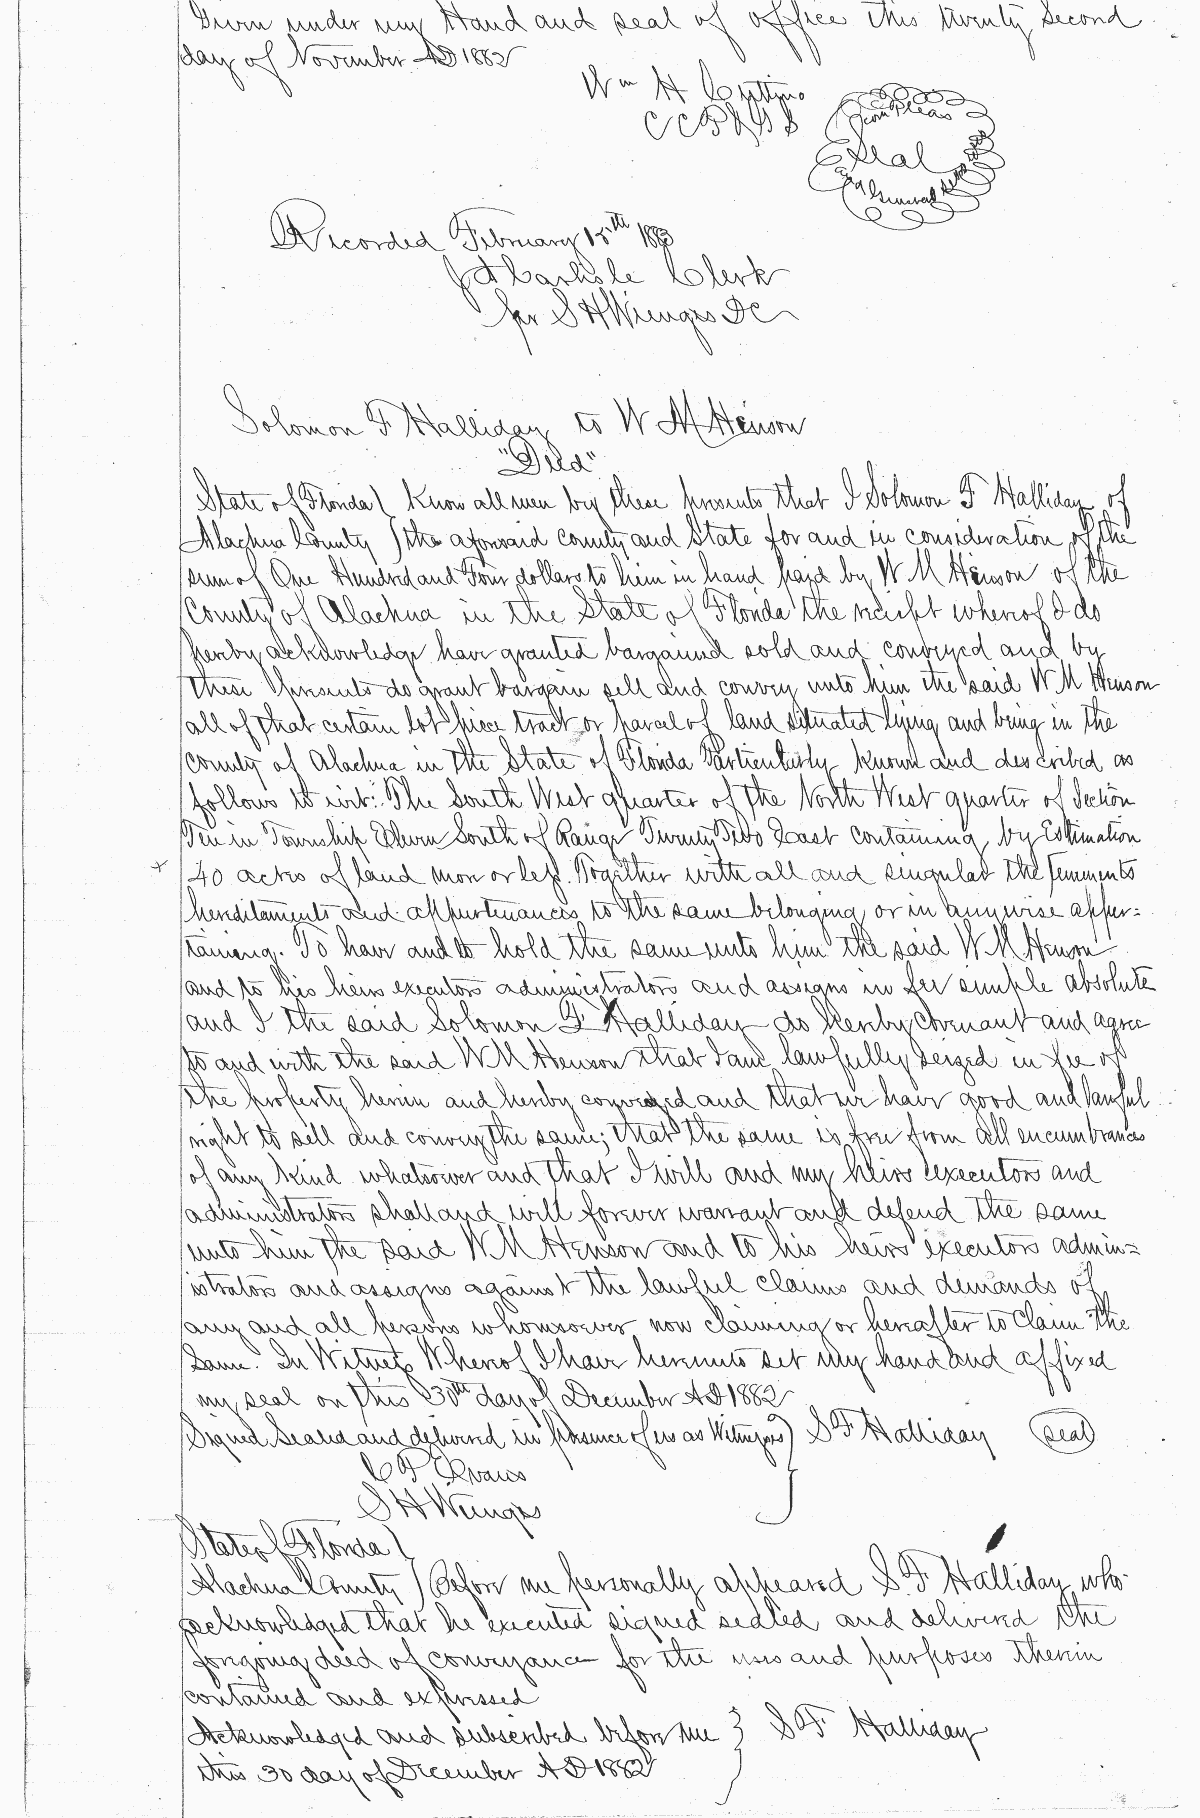 Given under my Hand and seal of office this twenty second
day of November AD 1882
Wm H
Com Pleas
Seal
and General Sessions
Recorded February 15th 1883
J A Carlisle Clerk
for S H Wienges DC
Solomon F Halliday to W M Henson
"Deed"
State of Florida ( Know all men by these presents that I Solomon F Halliday of
Alachua County ) the aforesaid county and State for and in consideration of the
sum of One Hundred and Four dollars to him in hand paid by W M Henson of the
County of Alachua in the State of Florida the receipt whereof I do
hereby acknowledge have granted bargained sold and conveyed and by
these presents do grant bargain sell and convey unto him the said W M Henson
all of that certain lot piece tract or parcel of land situated lying and being in the
county of Alachua in the State of Florida Particularly known and described as
follows to wit: The South West quarter of the North West quarter of Section
Ten in Township Eleven South of Range Twenty Two East containing by Estimation
x 40 acres of land more or less. Together with all and singular the tennments
hereditaments and appurtenances to the same belonging or in anywise apper=
taining. To have and to hold the same unto him the said W M Henson
and to his heirs executors administrators and assigns in fee simple absolute
and I the said Solomon F Halliday do hereby Covenant and agree
to and with the said W M Henson that I am lawfully seized in fee of
the property herein and hereby conveyed and that we have good and lawful
right to sell and convey the same; that the same is free from all encumbrances
of any kind whatsoever and that I will and my heirs executors and
administrators shall and will forever warrant and defend the same
unto him the said W M Henson and to his heirs executors admin=
istrators and assigns against the lawful claims and demands of
any and all persons whomsoever now claiming or hereafter to claim the
Same. In Witness Whereof I have hereunto set my hand and affixed
my seal on this 30th day of December AD 1882
Signed Sealed and delivered in presence of us as Witnesses ) S F Halliday (seal)
C P Evans
S H Wienges
State of Florida (
Alachua County ) Before me personally appeared S F Halliday who
acknowledged that he executed signed sealed and delivered the
foregoing deed of conveyance for the uses and purposes therein
contained and expressed
Acknowledged and subscribed before me } S F Halliday
this 30 day of December AD 1882